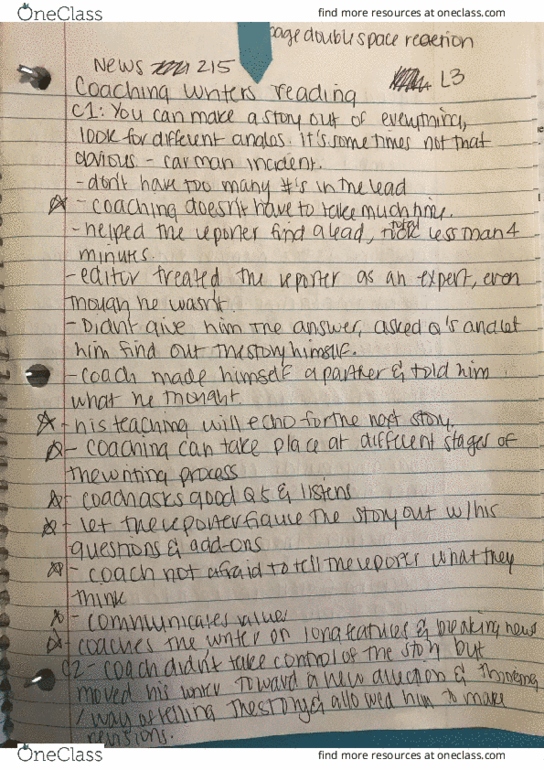 OneClass
find more resources at oneclass.com
page double space reaction
News 215
L3
Coaching writers reading
C1: You can make a story out of everything,
look for different angles. it's sometimes not that
obvious - car man incident.
- don't have too many #'s in the lead
☆ - coaching doesn't have to take much time.
- helped the reporter find a lead, took less than 4
minutes.
- editor treated the reporter as an expert, even
though he wasn't.
- Didn't give him the answer, asked Q's and let
him find out the story himself.
- coach made himself a partner & told him
what he thought.
☆ - his teaching will echo for the next story.
☆ - coaching can take place at different stages of
the writing process
☆ - coach asks good Qs & listens
☆ - let the reporter figure the story out w/ his
questions & add-ons
☆ - coach not afraid to tell the reporter what they
think
☆ - communicates values
☆ - coaches the writer on long features & breaking news
C2 - coach didn't take control of the story but
moved his writer toward a new direction & thinking
/ way of telling the story & allowed him to make
revisions.
OneClass
find more resources at oneclass.com